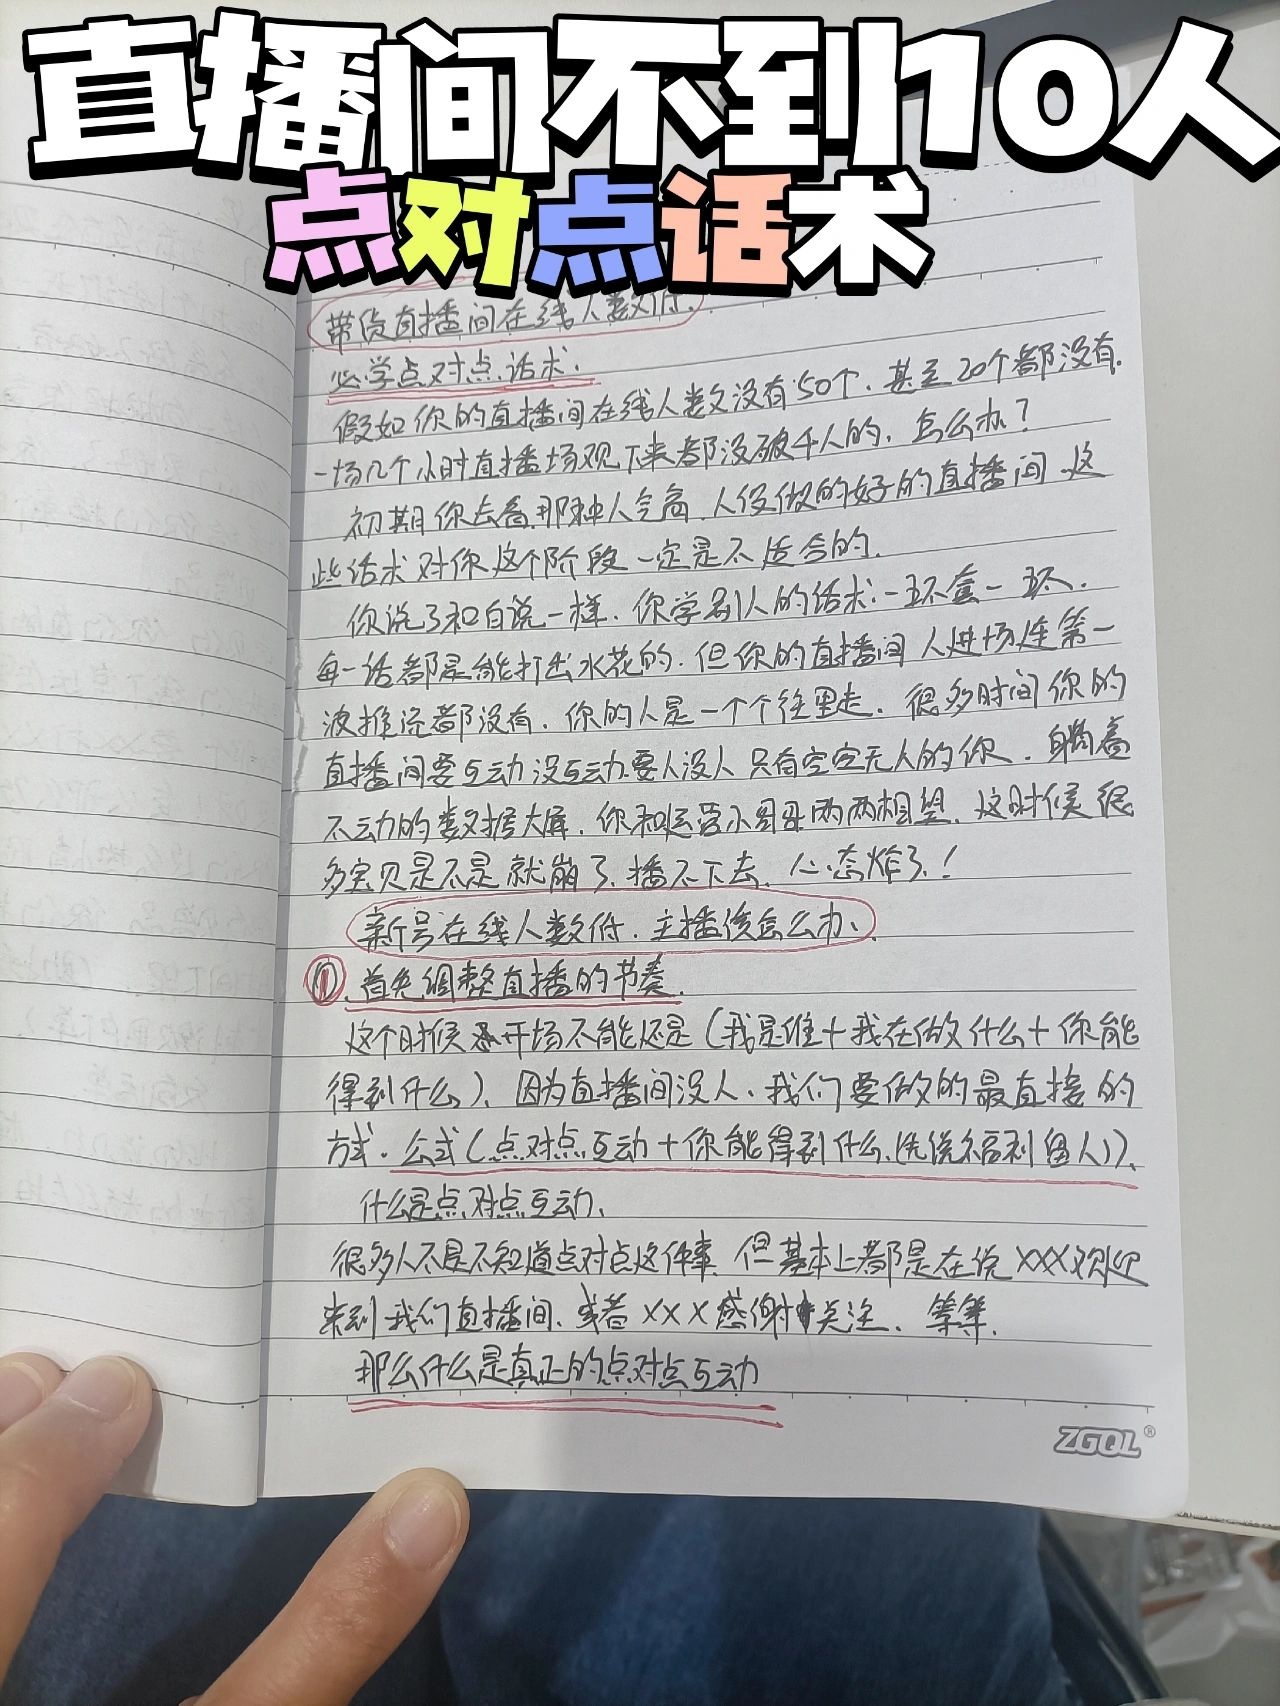 直播间不到10人
点对点话术
带货直播间在线人数低、
必学点对点话术.
假如你的直播间在线人数没有50个、甚至20个都没有.
一场几个小时直播场观下来都没破千人的、怎么办?
初期你去看那种人气高、人设做的好的直播间、这
些话术对你这个阶段一定是不适合的.
你说了和白说一样、你学别人的话术:一环套一环、
每一话都是能打出水花的、但你的直播间人进场连第一
波推流都没有、你的人是一个个往里走、很多时间你的
直播间要互动没互动、要人没人只有空空无人的你、
不动的数据大屏、你和运营小哥哥两两相望、这时候很
多宝贝是不是就崩了、播不下去、心态炸了!
新号在线人数低、主播该怎么办、
①、首先调整直播的节奏.
这个时候开场不能还是(我是谁+我在做什么+你能
得到什么)、因为直播间没人、我们要做的最直接的
方式、公式(点对点互动+你能得到什么、(先说福利留人))、
什么是点对点互动、
很多人不是不知道点对点这件事、但基本上都是在说XXX欢迎
来到我们直播间、或者XXX感谢关注、等等、
那么什么是真正的点对点互动
ZGQL®